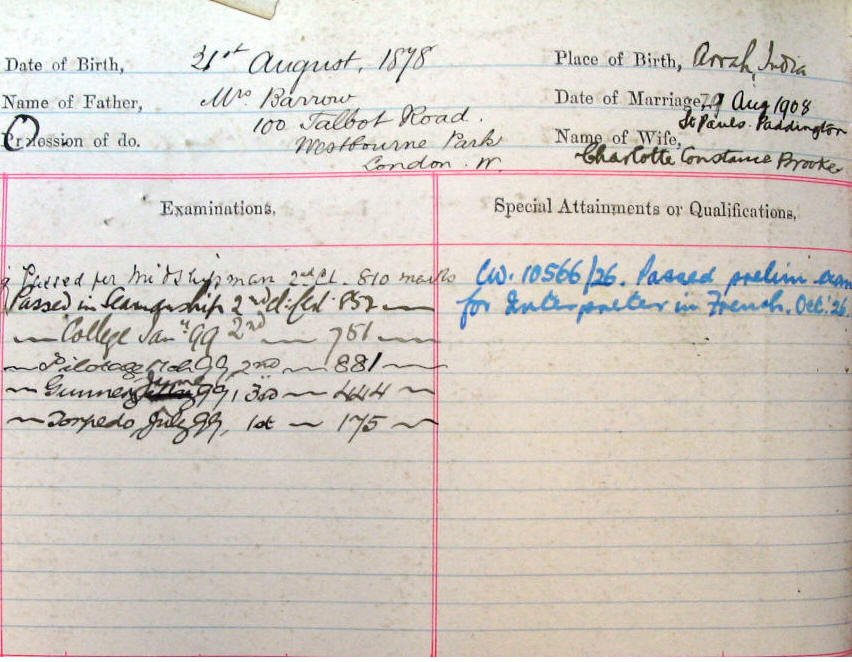 Date of Birth, 21st August, 1878 Place of Birth, Arrah, India
Name of Father, Mrs Barrow Date of Marriage, 29 Aug 1908
100 Talbot Road. St Pauls. Paddington
Profession of do. Westbourne Park Name of Wife,
London. W. Charlotte Constance Brooke
Examinations, Special Attainments or Qualifications,
Passed for Midshipman 2nd Cl. 810 marks
Passed in Seamanship 2nd cl: 852
College Jany 99 2nd 751
Pilotage 99, 2nd 881
Gunnery 99, 3rd 444
Torpedo July 99, 1st 175
CW. 10566/26. Passed prelim. exam
for Interpreter in French. Oct. 26.